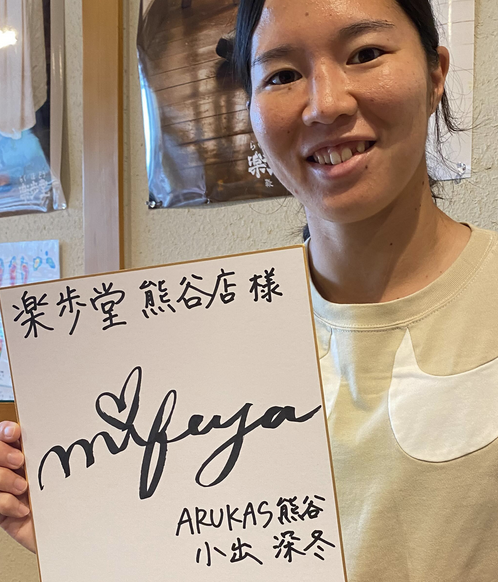 楽歩堂 熊谷店 様
mifuyu
ARUKAS熊谷
小出 深冬